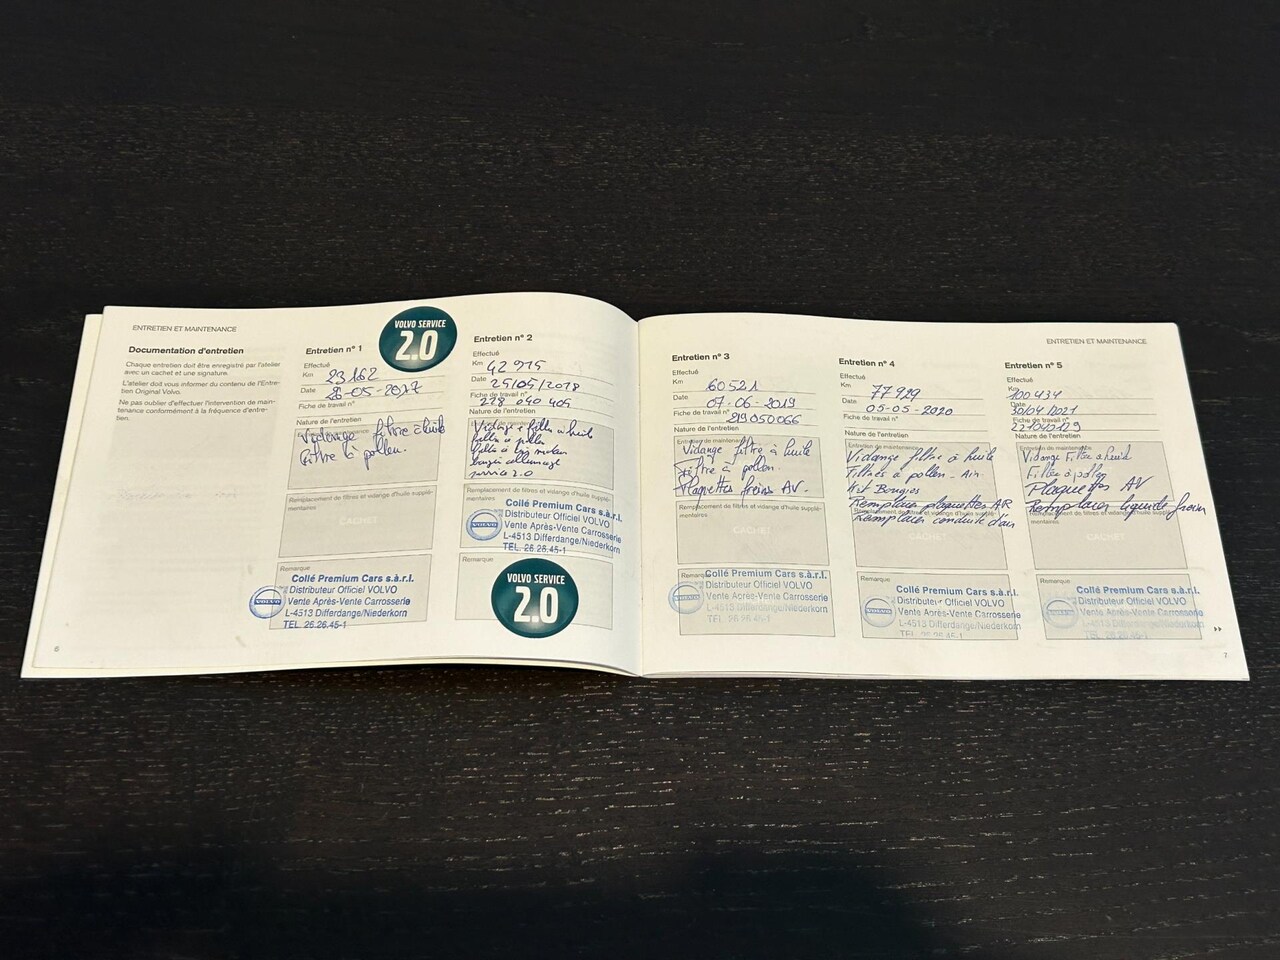 ENTRETIEN ET MAINTENANCE
Documentation d'entretien
Chaque entretien doit être enregistré par l'atelier
avec un cachet et une signature.
L'atelier doit vous informer du contenu de l'Entre-
tien Original Volvo.
Ne pas oublier d'effectuer l'intervention de main-
tenance conformément à la fréquence d'entre-
tien.
6
Entretien n° 1
VOLVO SERVICE
2.0
Effectué
Km 23162
Date 26-05-2017
Fiche de travail n°
Nature de l'entretien
Vidange filtre à huile
filtre à pollen.
Remplacement de filtres et vidange d'huile supplé-
mentaires
CACHET
Remarque
Collé Premium Cars s.à.r.l.
Distributeur Officiel VOLVO
VOLVO
Vente Après-Vente Carrosserie
L-4513 Differdange/Niederkorn
TEL. 26.26.45-1
Entretien n° 2
Effectué
Km 42 915
Date 25/05/2018
Fiche de travail n°
218 040 405
Nature de l'entretien
Vidange filtre à huile
filtre à pollen
bougie allumage
service 2.0
Remplacement de filtres et vidange d'huile supplé-
mentaires
Collé Premium Cars s.à.r.l.
Distributeur Officiel VOLVO
VOLVO
Vente Après-Vente Carrosserie
L-4513 Differdange/Niederkorn
TEL. 26.26.45-1
Remarque
VOLVO SERVICE
2.0
ENTRETIEN ET MAINTENANCE
Entretien n° 3
Effectué
Km 60521
Date 07-06-2019
Fiche de travail n°
219050066
Nature de l'entretien
Entretien de maintenance
Vidange filtre à huile
filtre à pollen.
Plaquettes freins AV.
Remplacement de filtres et vidange d'huile supplé-
mentaires
CACHET
Remarque
Collé Premium Cars s.à.r.l.
Distributeur Officiel VOLVO
VOLVO
Vente Après-Vente Carrosserie
L-4513 Differdange/Niederkorn
TEL. 26.26.45-1
Entretien n° 4
Effectué
Km 77929
Date 05-05-2020
Fiche de travail n°
Nature de l'entretien
Entretien de maintenance
Vidange filtre à huile
Filtres à pollen - Air.
Kit Bougies
Remplacer plaquettes AR
Remplacer conduite d'air
CACHET
Remarque
Collé Premium Cars s.à.r.l.
Distributeur Officiel VOLVO
VOLVO
Vente Après-Vente Carrosserie
L-4513 Differdange/Niederkorn
TEL. 26.26.45-1
Entretien n° 5
Effectué
Km 100434
Date 30/04/2021
Fiche de travail n°
Nature de l'entretien
Vidange Filtre à huile
Filtre à pollen
Plaquettes AV
Remplacer liquide frein
CACHET
Remarque
Collé Premium Cars s.à.r.l.
Distributeur Officiel VOLVO
VOLVO
Vente Après-Vente Carrosserie
L-4513 Differdange/Niederkorn
TEL. 26.26.45-1
7